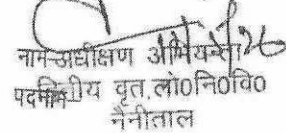 नाम-अधीक्षण अभियन्ता
पदनाम-तीय वृत, लो0नि0वि0
नैनीताल